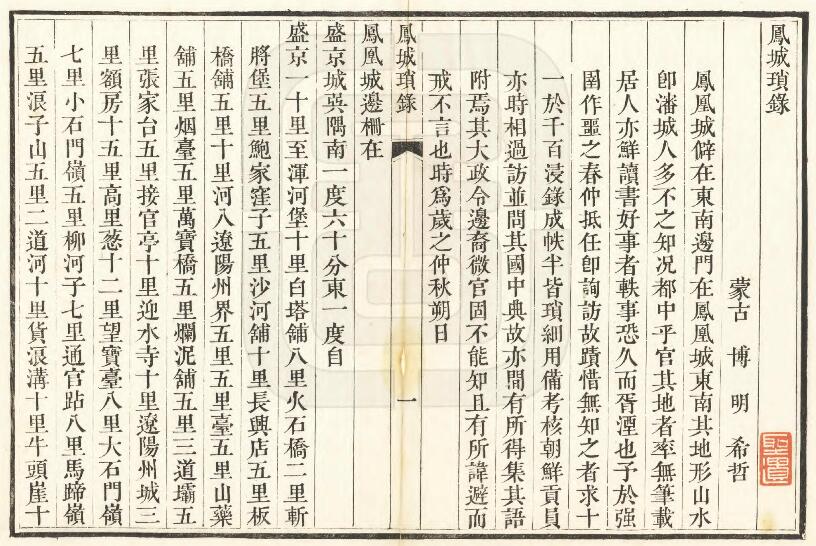 鳳城瑣錄
蒙古 博 明 希哲
鳳凰城僻在東南邊門在鳳凰城東南其地形山水
卽瀋城人多不之知况都中乎官其地者率無筆載
居人亦鮮讀書好事者軼事恐久而胥湮也予於强
圉作噩之春仲抵任卽詢訪故蹟惜無知之者求十
一於千百浸錄成帙半皆瑣細用備考核朝鮮貢員
亦時相過訪並問其國中典故亦間有所得集其語
附焉其大政令邊裔微官固不能知且有所諱避而
戒不言也時爲歲之仲秋朔日
鳳城瑣錄
一
鳳凰城邊柵在
盛京城巽隅南一度六十分東一度自
盛京一十里至渾河堡十里白塔舖八里火石橋二里斬
將堡五里鮑家窪子五里沙河舖十里長興店五里板
橋舖五里十里河八遼陽州界五里五里臺五里山藥
舖五里烟臺五里萬寶橋五里爛泥舖五里三道壩五
里張家台五里接官亭十里迎水寺十里遼陽州城三
里額房十五里高里葱十二里望寶臺八里大石門嶺
七里小石門嶺五里柳河子七里通官站八里馬蹄嶺
五里浪子山五里二道河十里貨浪溝十里牛頭崖十